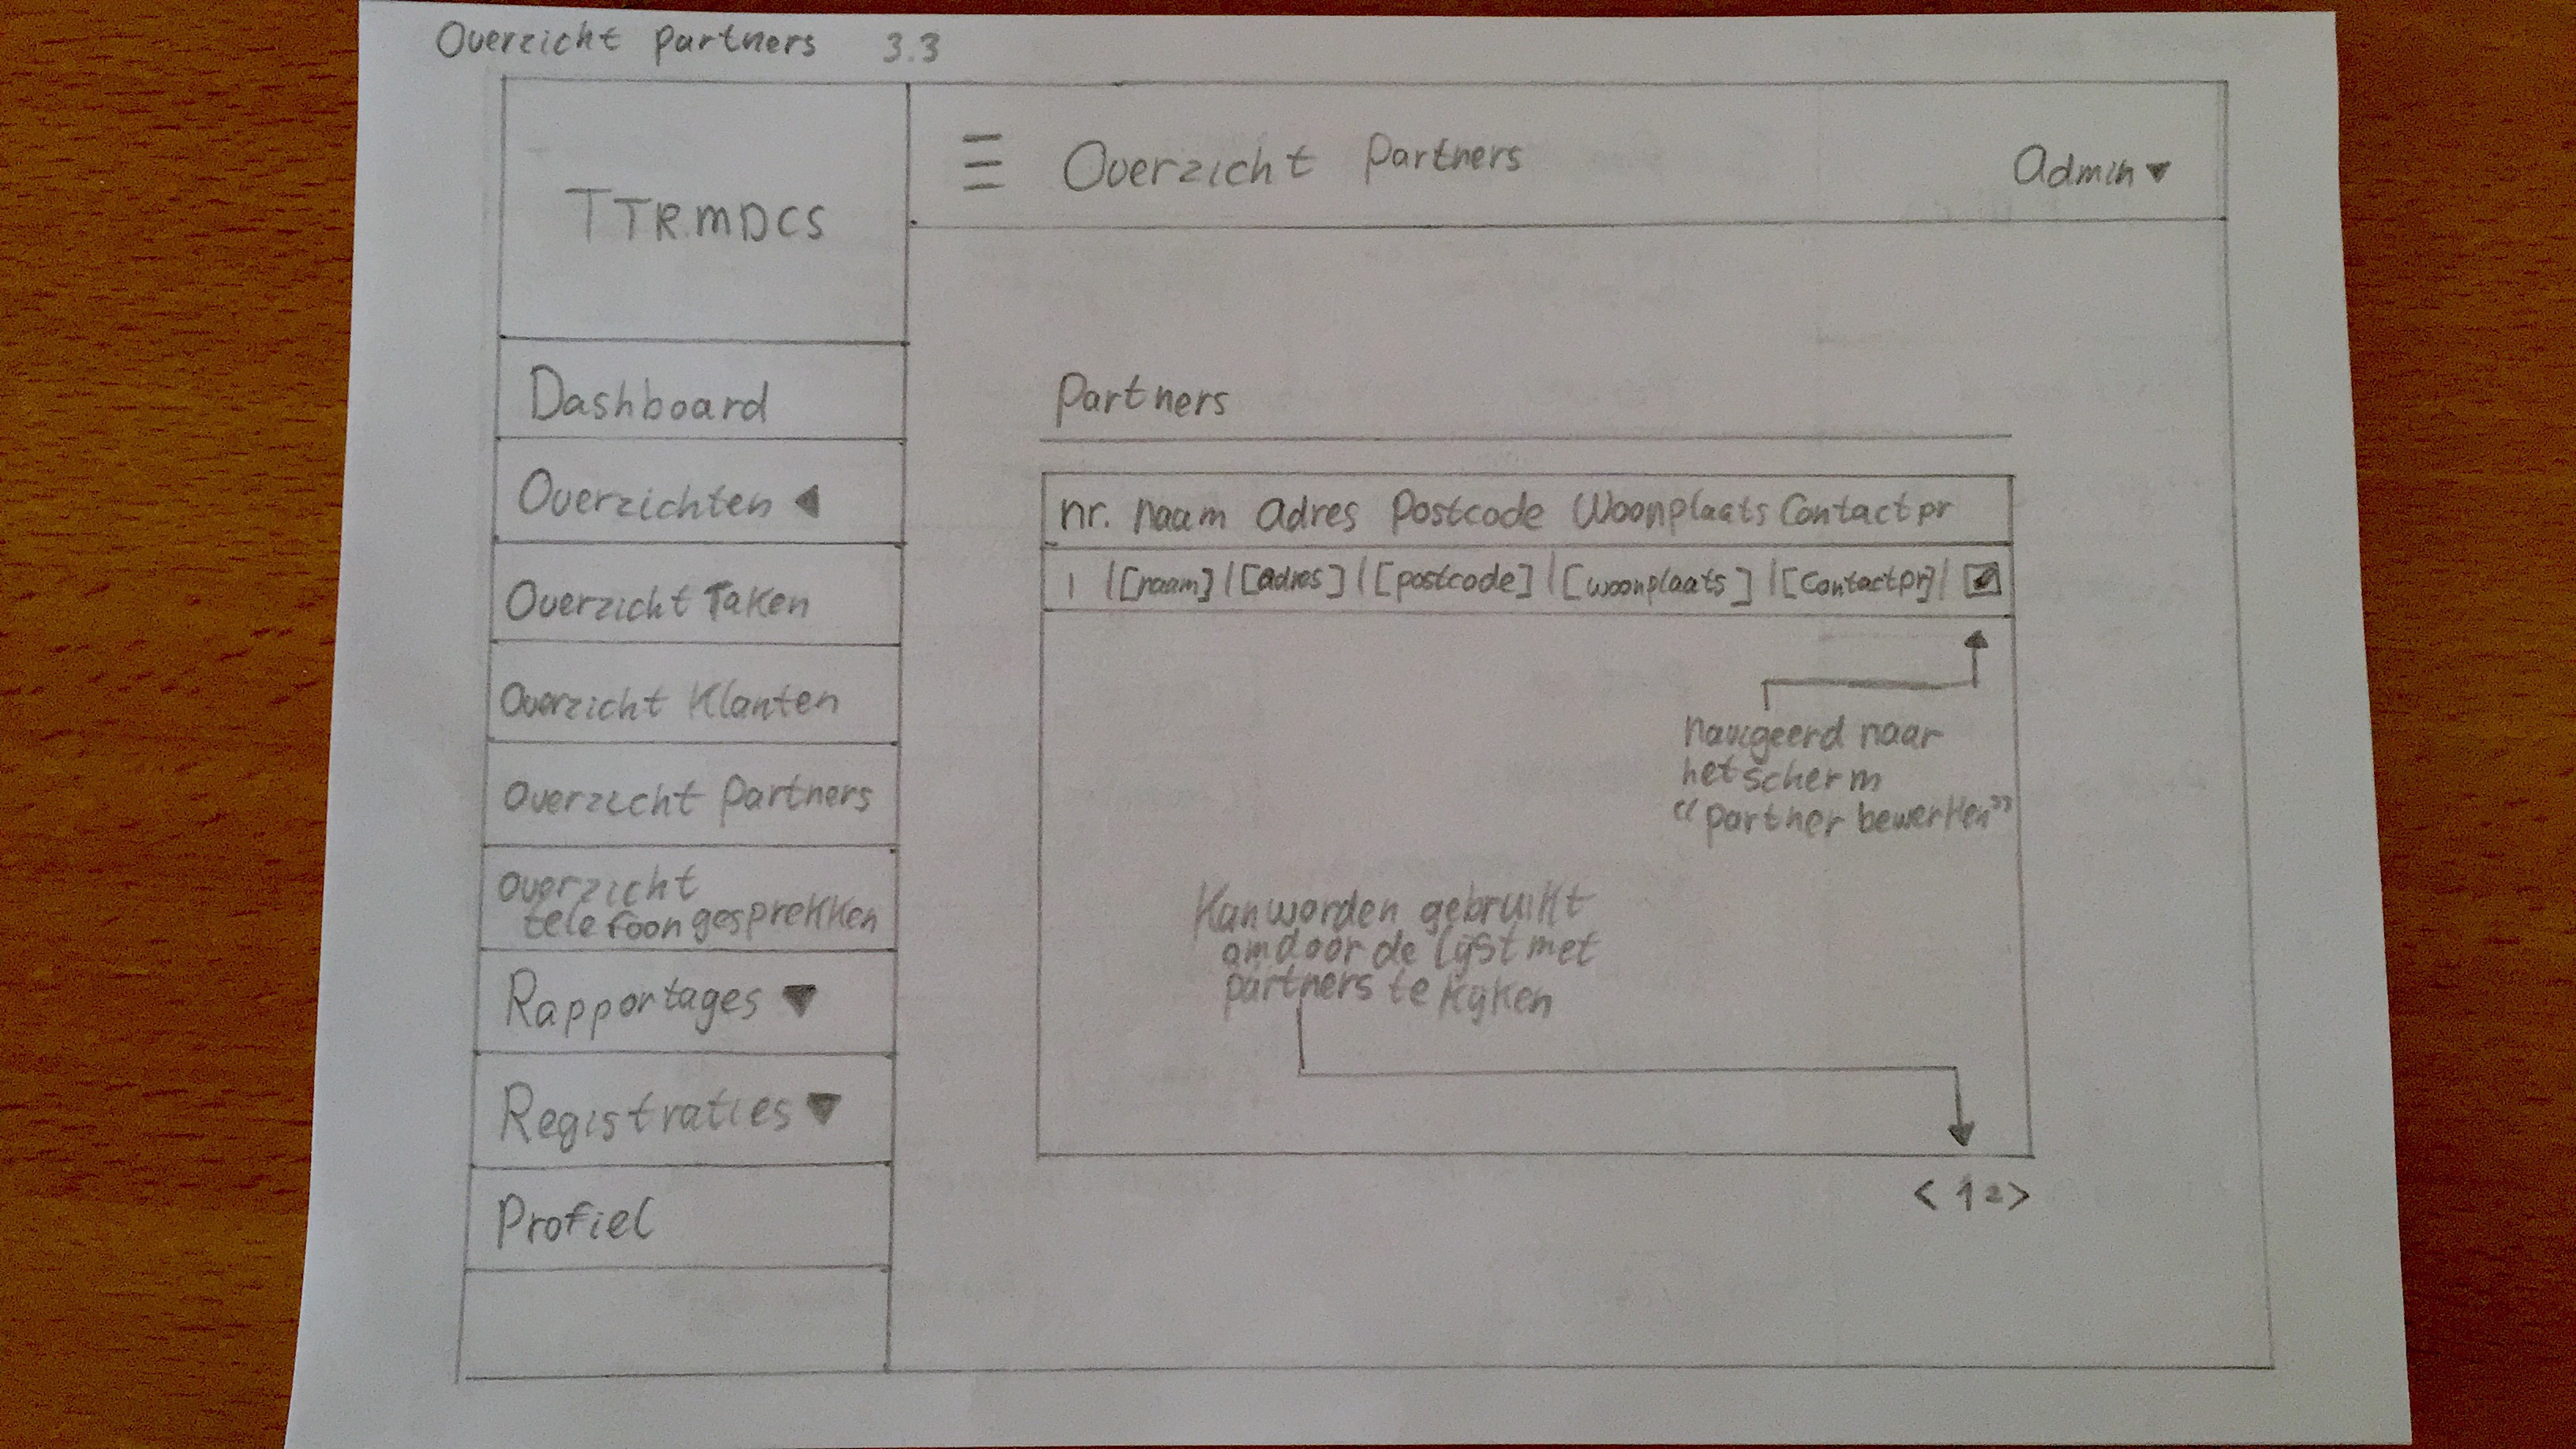 Overzicht partners 3.3
TTRMDCS
Overzicht Partners
Admin
Dashboard
Overzichten
Overzicht Taken
Overzicht Klanten
Overzicht Partners
Overzicht
telefoongesprekken
Rapportages
Registraties
Profiel
Partners
nr. naam adres Postcode Woonplaats Contactpr
1 |[naam] |[adres] |[postcode] |[woonplaats] |[Contactpr]|
navigeerd naar
het scherm
“partner bewerken”
Kan worden gebruikt
om door de lijst met
partners te kijken
< 1 2 >